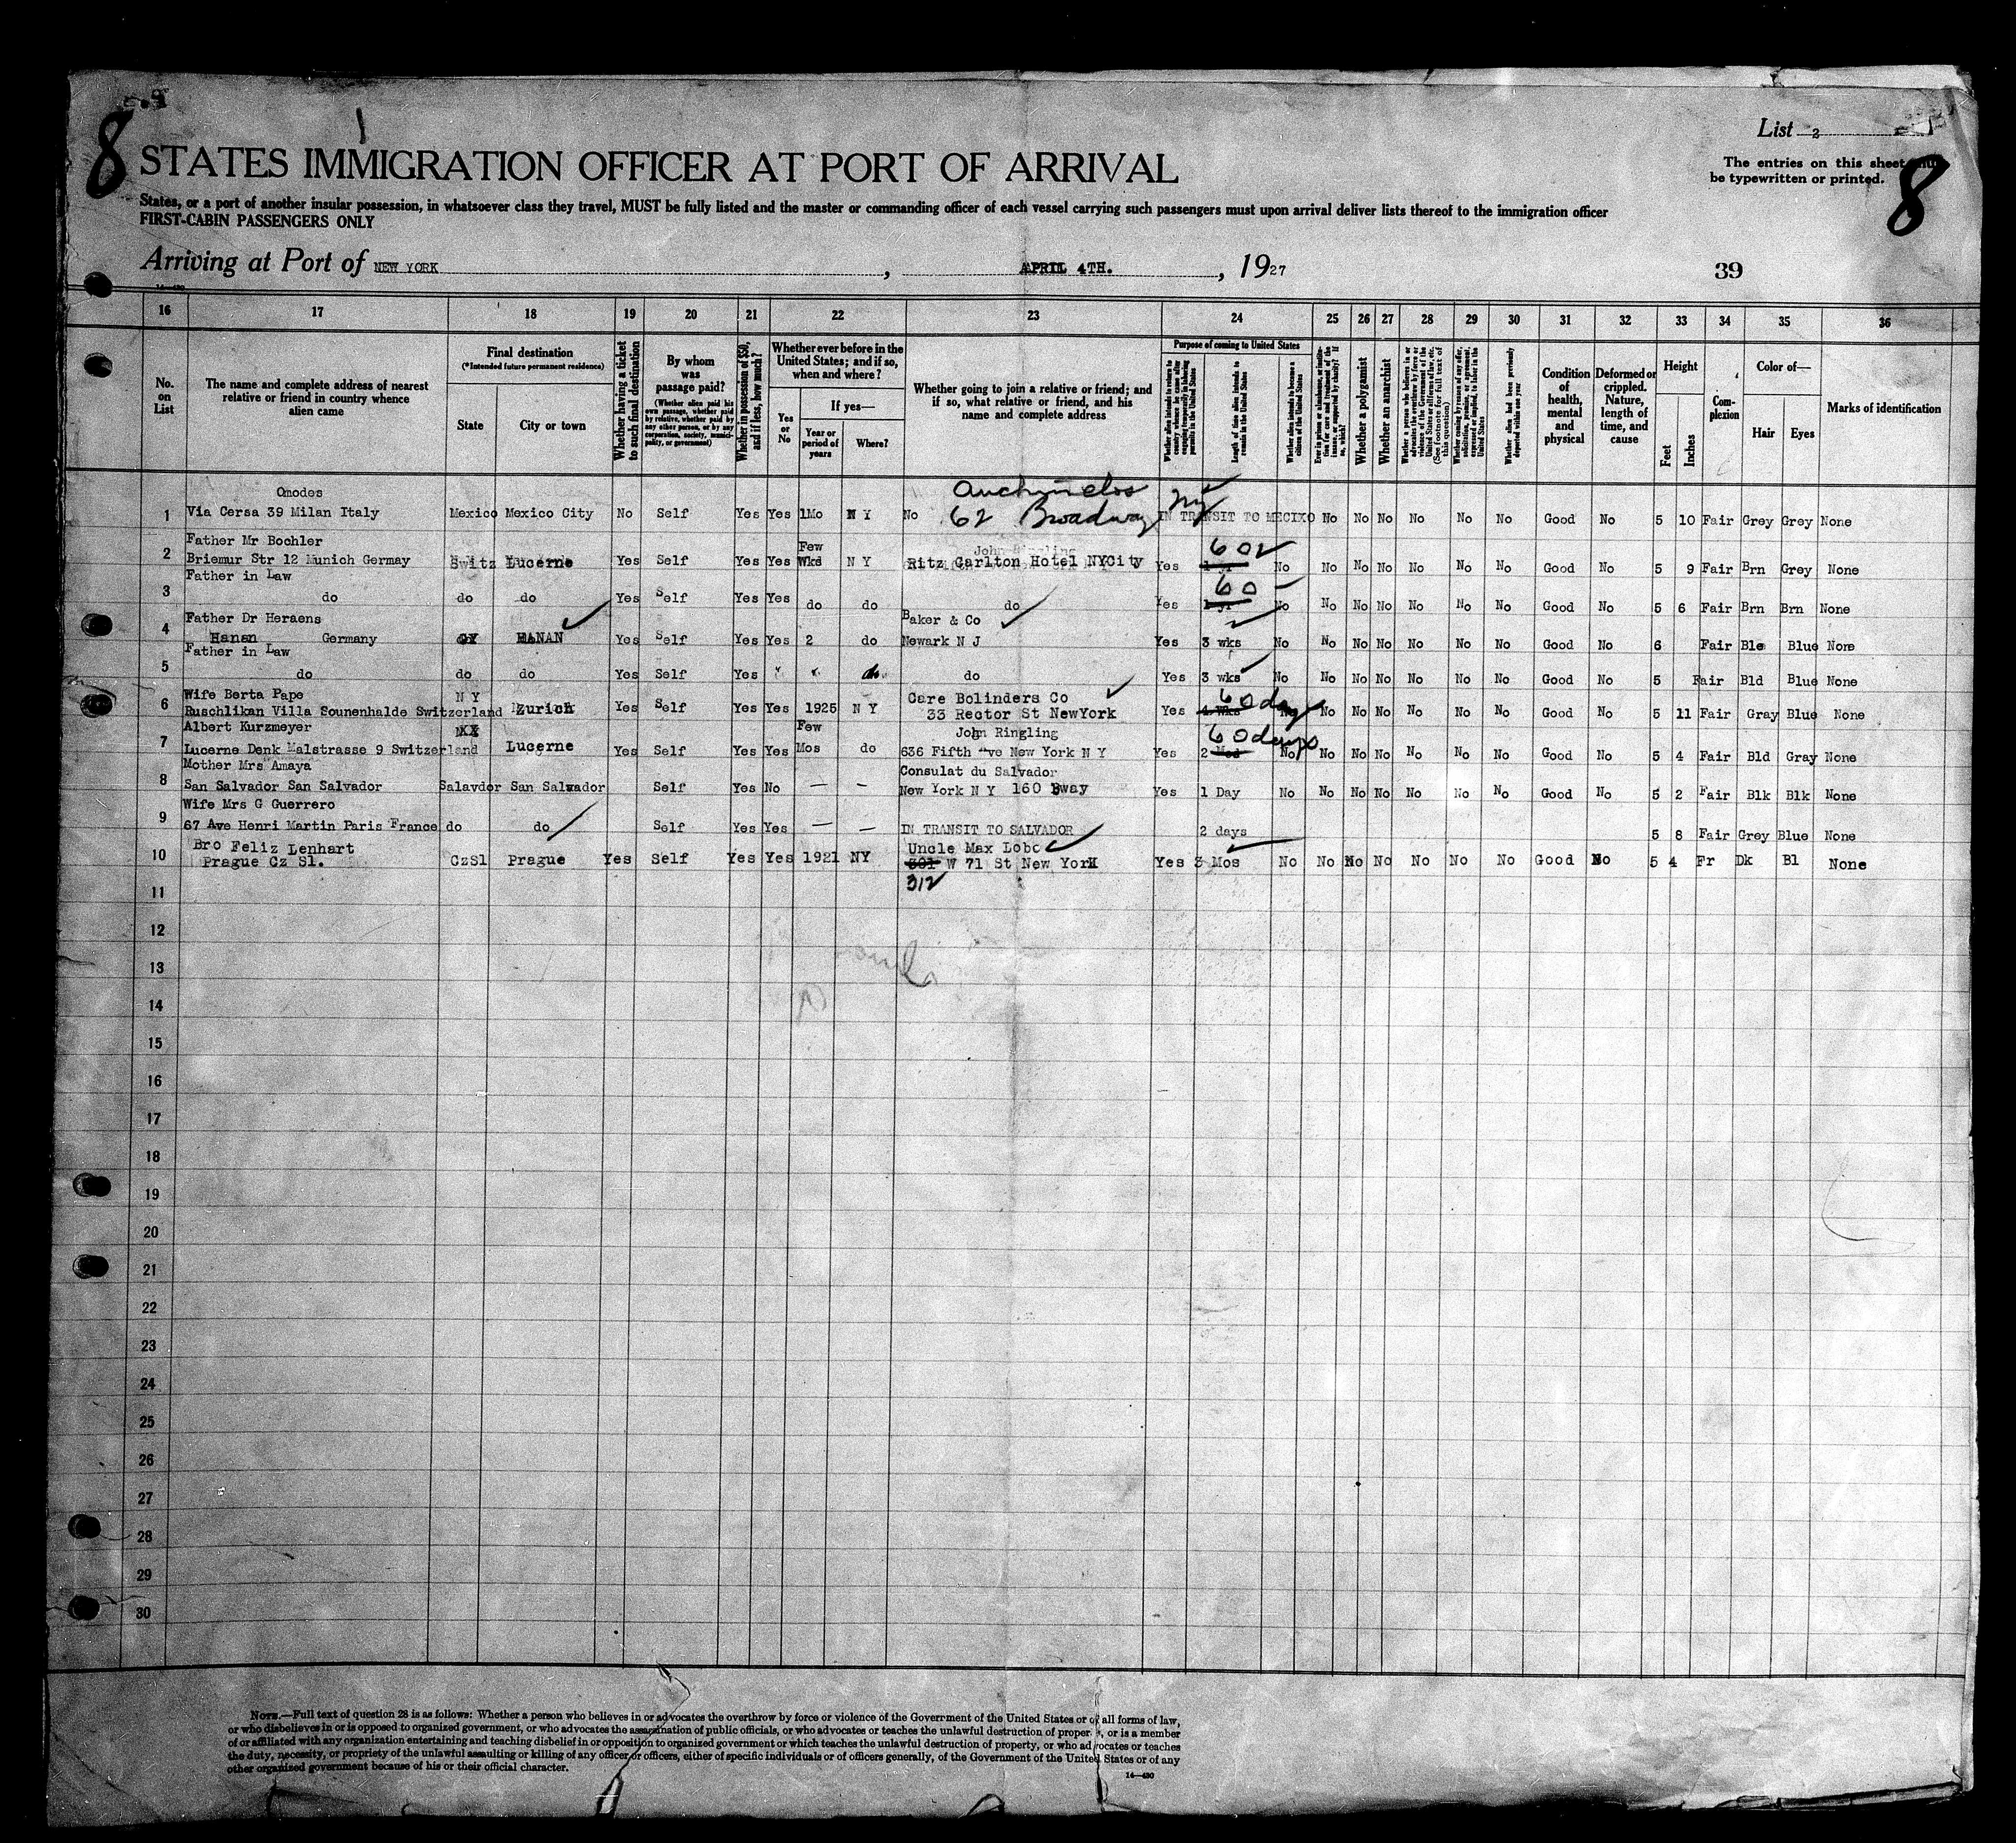 8
STATES IMMIGRATION OFFICER AT PORT OF ARRIVAL
List 2
The entries on this sheet
be typewritten or printed.
8
States, or a port of another insular possession, in whatsoever class they travel, MUST be fully listed and the master or commanding officer of each vessel carrying such passengers must upon arrival deliver lists thereof to the immigration officer
FIRST-CABIN PASSENGERS ONLY
Arriving at Port of NEW YORK, APRIL 4TH., 1927
39
16 17 18 19 20 21 22 23 24 25 26 27 28 29 30 31 32 33 34 35 36
No. on List
The name and complete address of nearest relative or friend in country whence alien came
Final destination
(*Intended future permanent residence)
State
City or town
Whether having a ticket to such final destination
By whom was passage paid?
(Whether alien paid his own passage, whether paid by relative, whether paid by any other person, or by any corporation, society, municipality, or government)
Whether in possession of $50, and if less, how much?
Whether ever before in the United States; and if so, when and where?
Yes or No
If yes—
Year or period of years
Where?
Whether going to join a relative or friend; and if so, what relative or friend, and his name and complete address
Purpose of coming to United States
Whether alien intends to return to country whence he came after engaging temporarily in laboring pursuits in the United States
Length of time alien intends to remain in the United States
Whether alien intends to become a citizen of the United States
Ever in prison or almshouse, or institution for care and treatment of the insane, or supported by charity? If so, which?
Whether a polygamist
Whether an anarchist
Whether a person who believes in or advocates the overthrow by force or violence of the Government of the United States or all forms of law, etc. (See footnote for full text of this question)
Whether coming by reason of any offer, solicitation, promise, or agreement, expressed or implied, to labor in the United States
Whether alien had been previously deported within one year
Condition of health, mental and physical
Deformed or crippled. Nature, length of time, and cause
Height
Feet
Inches
Complexion
Color of—
Hair
Eyes
Marks of identification
Omodes
1 Via Cersa 39 Milan Italy Mexico Mexico City No Self Yes Yes 1Mo N Y No 62 Broadway NY IN TRANSIT TO MECIXO No No No No No No Good No 5 10 Fair Grey Grey None
Father Mr Bochler Few John Ringling 60
2 Briemur Str 12 Munich Germay Switz Lucerne Yes Self Yes Yes Wks N Y Ritz Carlton Hotel NYCity Yes 1 yr No No No No No No No Good No 5 9 Fair Brn Grey None
Father in Law 60
3 do do do Yes Self Yes Yes do do do Yes 1 yr No No No No No No No Good No 5 6 Fair Brn Brn None
Father Dr Heraens Baker & Co
4 Hanan Germany GY HANAN Yes Self Yes Yes 2 do Newark N J Yes 3 wks No No No No No No No Good No 6 Fair Ble Blue None
Father in Law
5 do do do Yes Self Yes " " do do Yes 3 wks No No No No No No No Good No 5 Fair Bld Blue None
Wife Berta Pape N Y Care Bolinders Co 60 days
6 Ruschlikan Villa Sounenhalde Switzerland Zurich Yes Self Yes Yes 1925 N Y 33 Rector St NewYork Yes 4 Wks No No No No No No No Good No 5 11 Fair Gray Blue None
Albert Kurzmeyer Few John Ringling 60 days
7 Lucerne Denk Malstrasse 9 Switzerland Lucerne Yes Self Yes Yes Mos do 636 Fifth Ave New York N Y Yes 2 Mos No No No No No No No Good No 5 4 Fair Bld Gray None
Mother Mrs Amaya Consulat du Salvador
8 San Salvador San Salvador Salavdor San Salvador Self Yes No — — New York N Y 160 Bway Yes 1 Day No No No No No No No Good No 5 2 Fair Blk Blk None
Wife Mrs G Guerrero
9 67 Ave Henri Martin Paris France do do Self Yes Yes — — IN TRANSIT TO SALVADOR 2 days 5 8 Fair Grey Blue None
Bro Feliz Lenhart Uncle Max Lobo
10 Prague Cz Sl. CzSl Prague Yes Self Yes Yes 1921 NY 301 W 71 St New York Yes 3 Mos No No No No No No No Good No 5 4 Fr Dk Bl None
312
11
12
13
14
15
16
17
18
19
20
21
22
23
24
25
26
27
28
29
30
NOTE.—Full text of question 28 is as follows: Whether a person who believes in or advocates the overthrow by force or violence of the Government of the United States or of all forms of law,
or who disbelieves in or is opposed to organized government, or who advocates the assassination of public officials, or who advocates or teaches the unlawful destruction of property, or is a member
of or affiliated with any organization entertaining and teaching disbelief in or opposition to organized government or which teaches the unlawful destruction of property, or who advocates or teaches
the duty, necessity, or propriety of the unlawful assaulting or killing of any officer or officers, either of specific individuals or of officers generally, of the Government of the United States or of any
other organized government because of his or their official character.
14—430